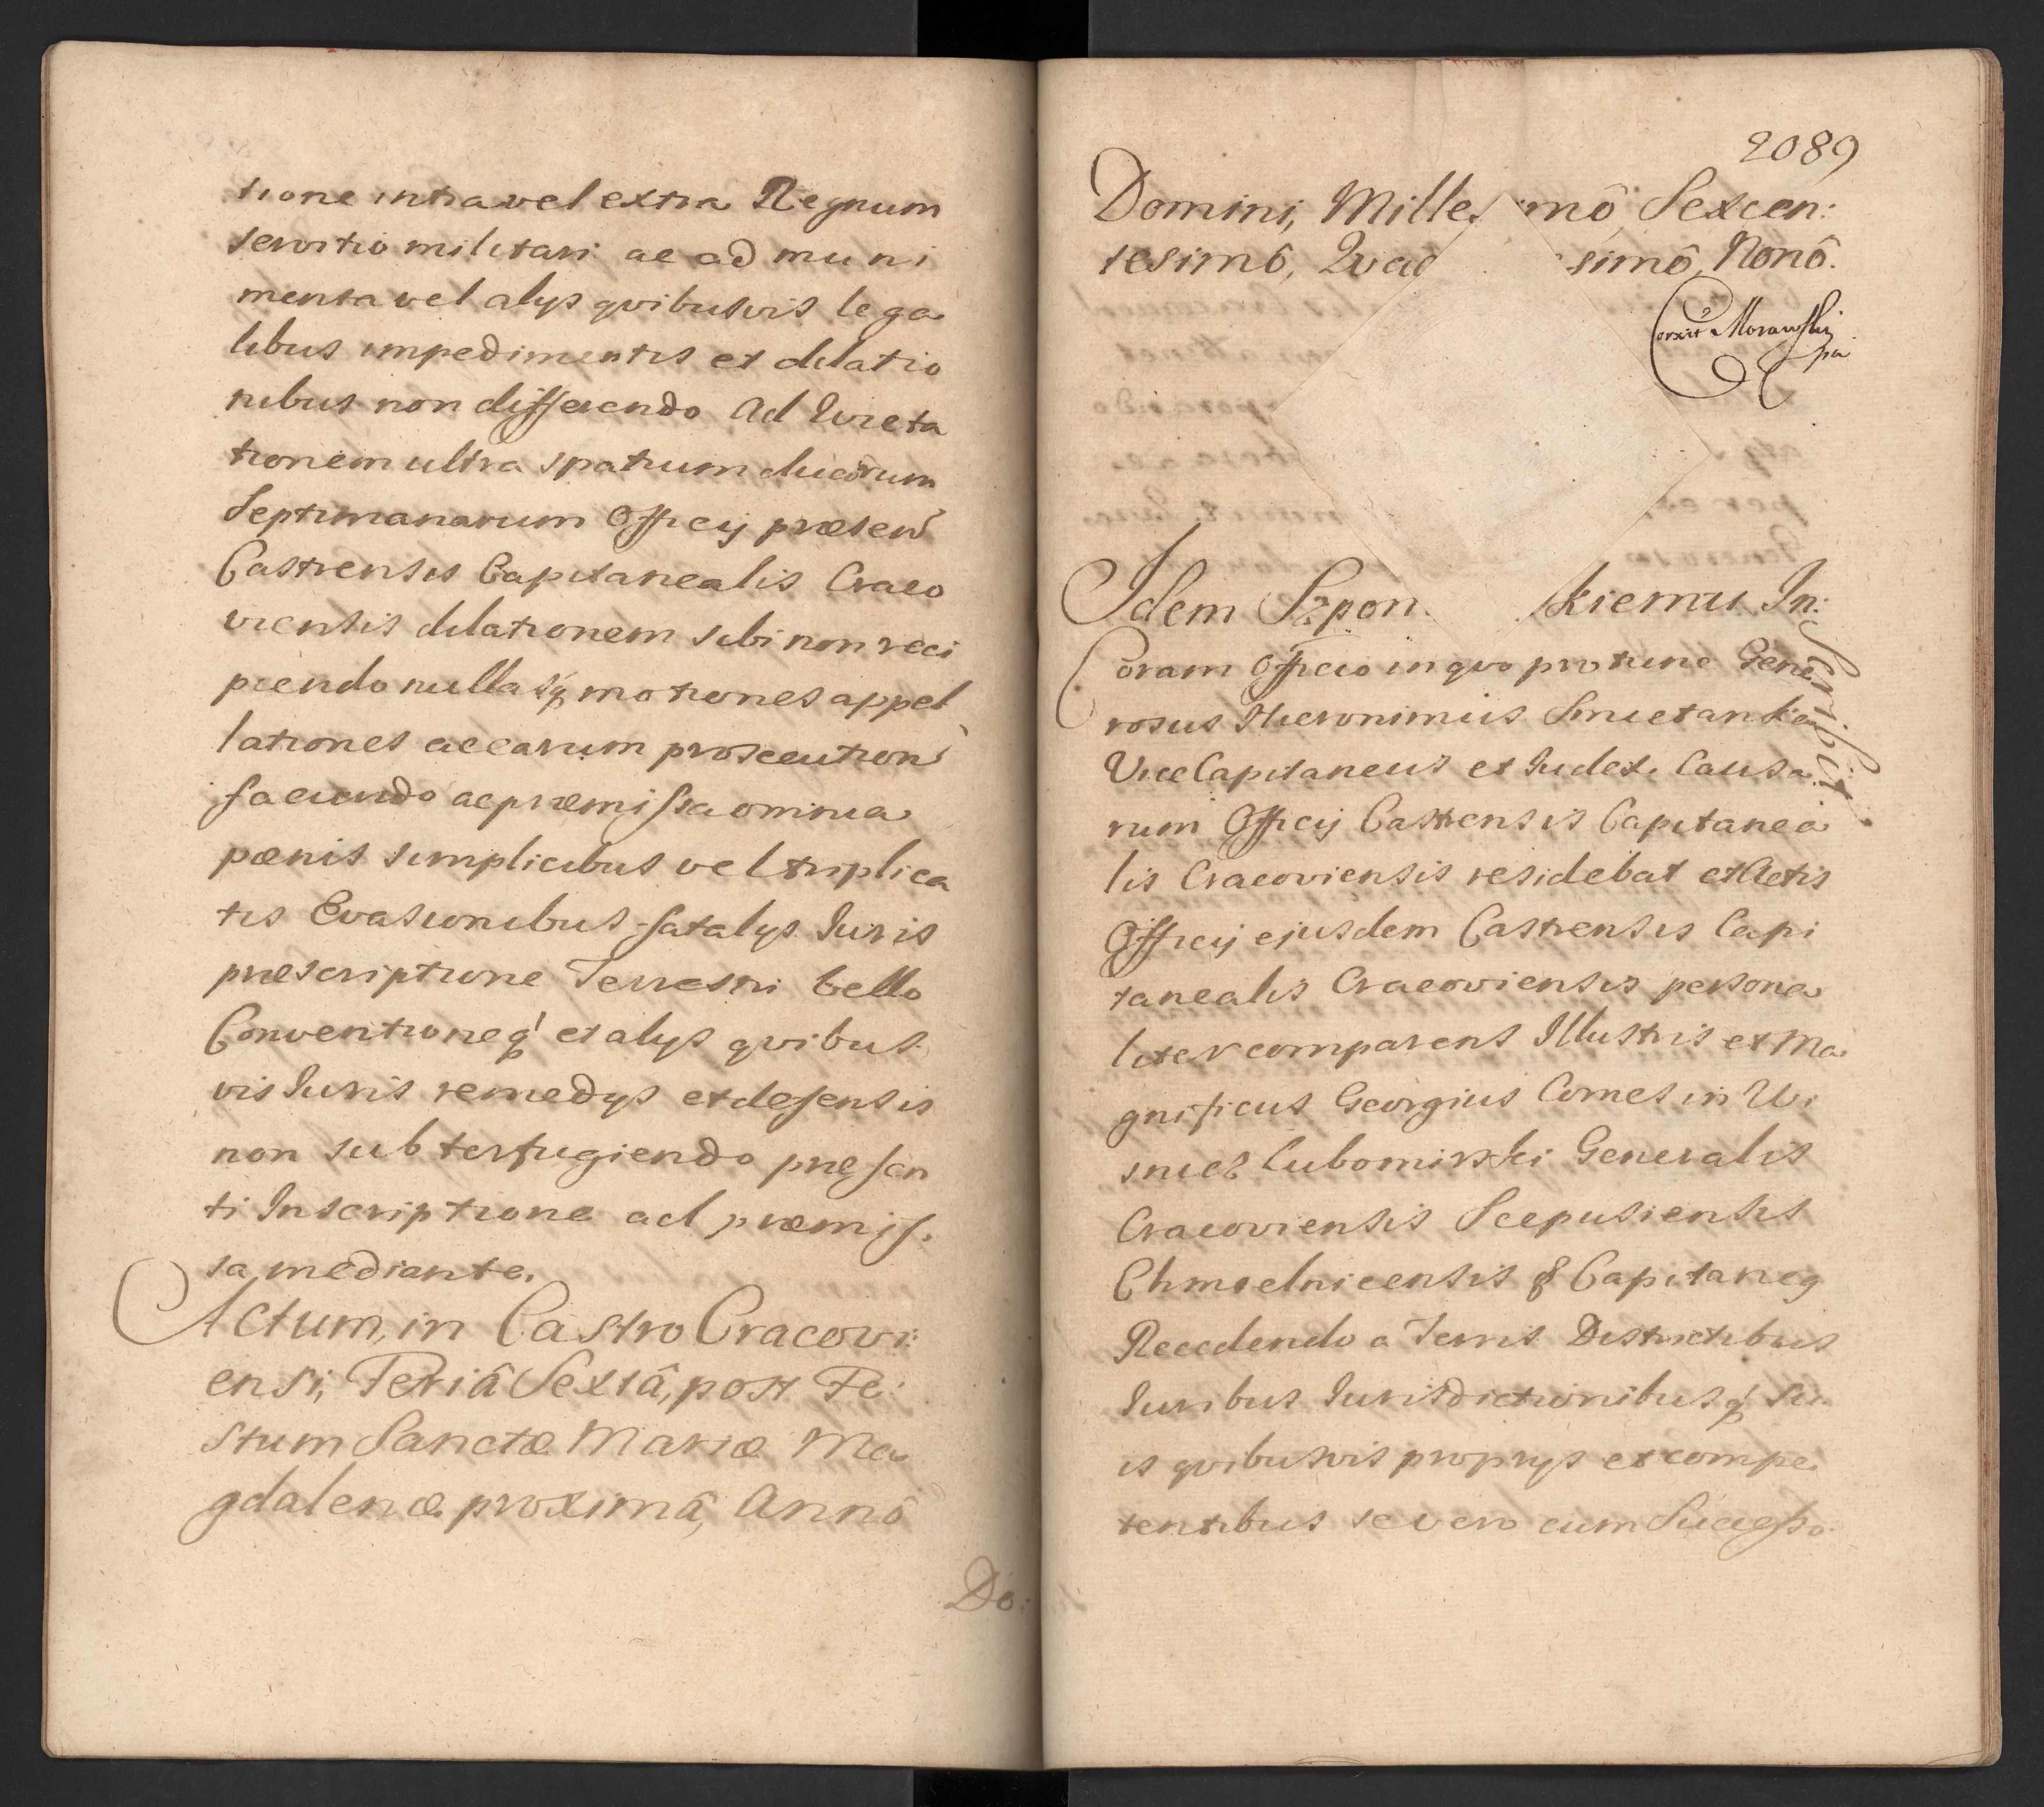 tione intra vel extra Regnum
servitio militari ac ad muni
menta vel alys qvibusvis lega
libus impedimentis et dilatio
nibus non differendo Ad Iureta
tionem ultra spatium duarum
Septimanarum Officij præsen
Castrensis Capitanealis Craco
viensis dilationem sibi non reci
piendo nullasq motiones appel
lationes ac earum prosecution
faciendo ac præmissa omnia
pænis simplicibus vel triplica
tis Evasionibus fatalys Iuris
præscriptione Terrestri bello
Conventioneq et alys qvibus
vis Iuris remedys et defensis
non subterfugiendo præsen
ti Inscriptione ad præmis
sa mediante.
Actum, in Castro Cracovi:
ensi, Feriâ Sextâ, post Fe:
stum Sanctæ Mariæ Ma
gdalenæ proximâ, Annô
Do:
2089
Domini, Mille mô, Sexcen:
tesimô, Qvad simô, Nonô.
Corxit Morawski
pa
Idem Szpon kiemu In:
scribit
Coram Officio in qvo pro tunc Gene
rosus Hieronimus Smietanka
Vice Capitaneus et Iudex Causa
rum Officij Castrensis Capitanea
lis Cracoviensis residebat et Actis
Officij ejusdem Castrensis Capi
tanealis Cracoviensis persona
liter comparens Illustris et Ma
gnificus Georgius Comes in Wi
snicz Lubomirski Generalis
Cracoviensis Scepusiensis
Chmielnicensis & Capitaneg
Recedendo a Terris Districtibus
Iuribus Iurisdictionibusq su
is qvibusvis proprys et compe
tentibus se vero cum Successo